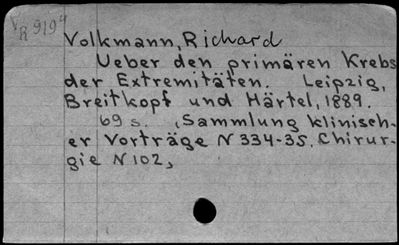 V
R 919
Volkmann, Richard
Ueber den primären Krebs
der Extremitäten. Leipzig,
Breitkopf und Härtel, 1889.
69 s. (Sammlung klinisch-
er Vorträge N 334-35. Chirur-
gie N 102,